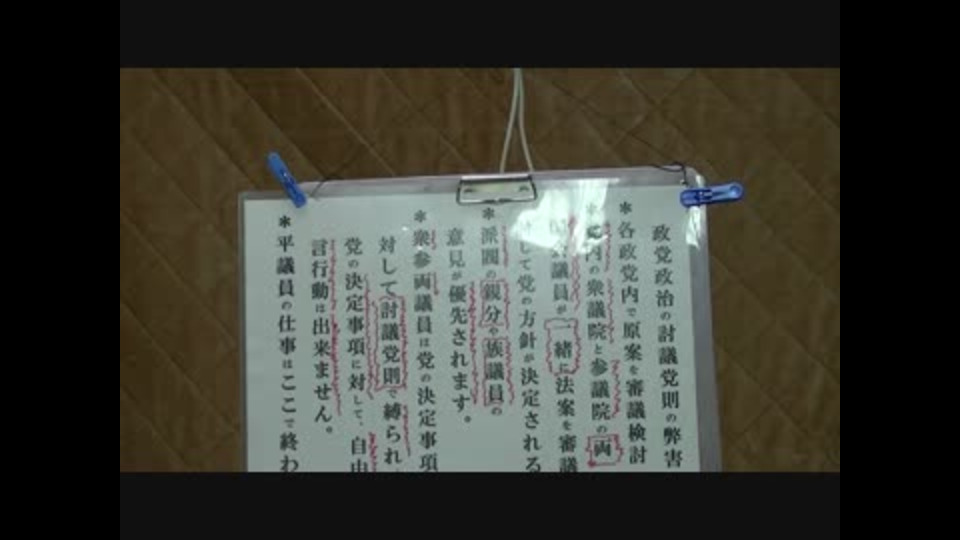 政党政治の討議党則の弊害
＊各政党内で原案を審議検討
＊党内の衆議院と参議院の両
議員が一緒に法案を審議
して党の方針が決定される
＊派閥の親分や族議員の
意見が優先されます。
＊衆参両議員は党の決定事項
対して討議党則で縛られ
党の決定事項に対して、自由
言行動は出来ません。
＊平議員の仕事はここで終わ